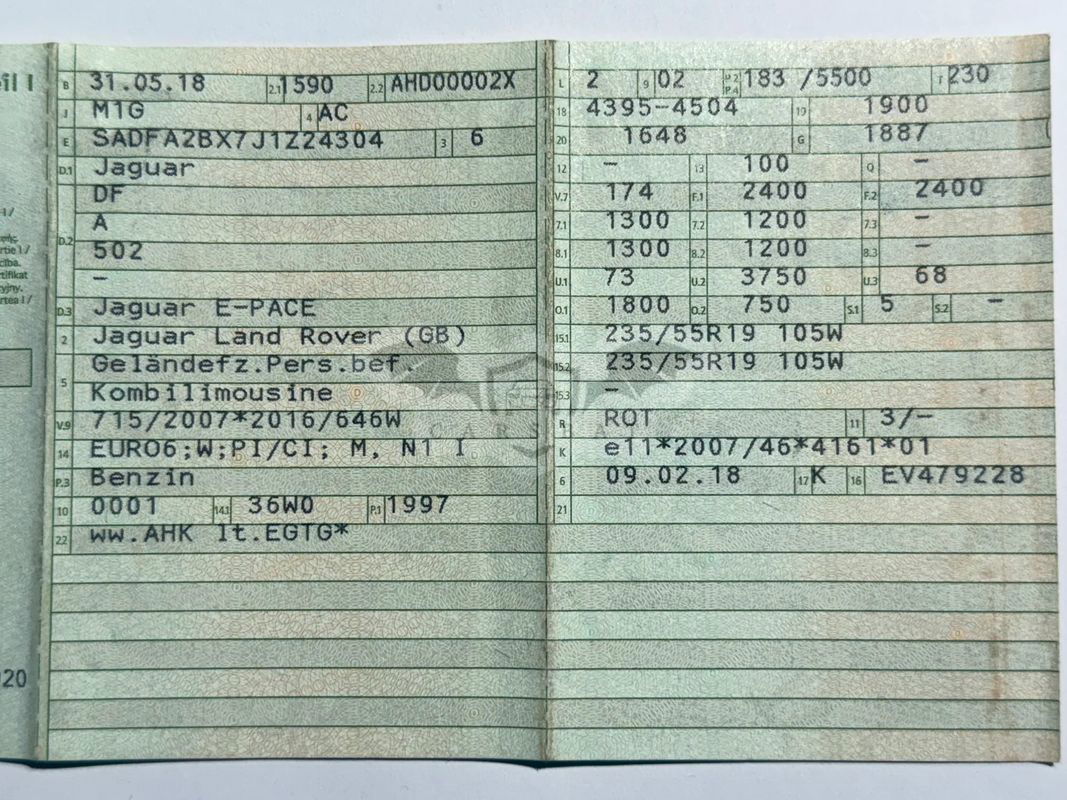 eil I
B 31.05.18 2.1 1590 2.2 AHD00002X
J M1G 4 AC
E SADFA2BX7J1Z24304 3 6
D.1 Jaguar
DF
D.2 A
502
–
D.3 Jaguar E-PACE
2 Jaguar Land Rover (GB)
5 Geländefz.Pers.bef.
Kombilimousine
V.9 715/2007*2016/646W
14 EURO6;W;PI/CI; M, N1 I
P.3 Benzin
10 0001 14.1 36W0 P.1 1997
22 ww.AHK lt.EGTG*
L 2 9 02 P.2 P.4 183 /5500 T 230
18 4395-4504 19 1900
20 1648 G 1887
12 – 13 100 Q –
V.7 174 F.1 2400 F.2 2400
7.1 1300 7.2 1200 7.3 –
8.1 1300 8.2 1200 8.3 –
U.1 73 U.2 3750 U.3 68
O.1 1800 O.2 750 S.1 5 S.2 –
15.1 235/55R19 105W
15.2 235/55R19 105W
15.3 –
R ROT 11 3/–
K e11*2007/46*4161*01
6 09.02.18 17 K 16 EV479228
21
rtie I /
cíba.
rtifikat
yjny.
rtea I /
020